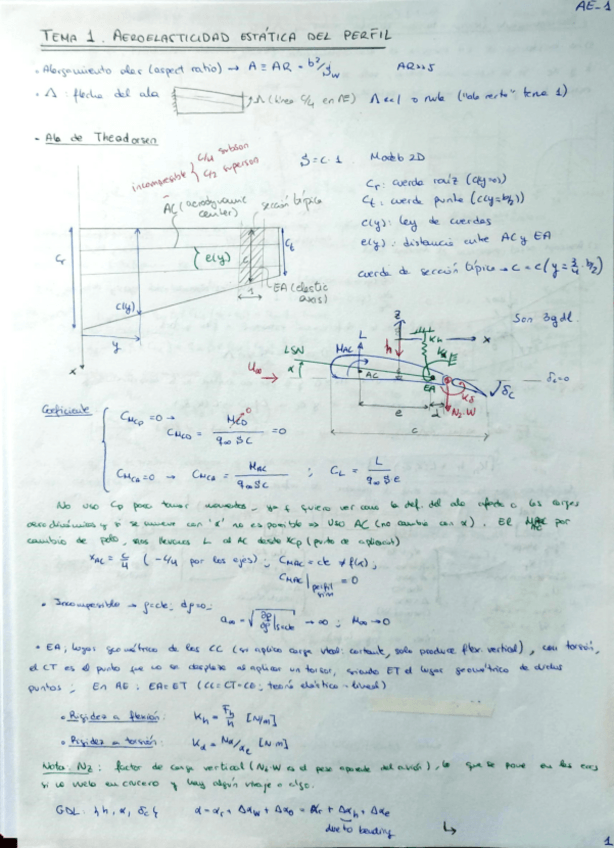 AE-1
TEMA 1. AEROELASTICIDAD ESTÁTICA DEL PERFIL
• Alargamiento alar (aspect ratio) → A ≡ AR = b²/Sw    AR>>5
• Λ : flecha del ala    Λ (línea C/4 en AE)    Λ≈0 o nula ("ala recta" tema 1)
- Ala de Theodorsen
incompresible { c/4 subson
c/2 superson
S = c·1    Modelo 2D
AC (aerodynamic center)
sección típica
Cr : cuerda raíz (c(y=0))
Ct : cuerda punta (c(y=b/2))
c(y) : ley de cuerdas
e(y) : distancia entre AC y EA
cuerda de sección típica → c = c(y = 3/4 · b/2)
Cr
e(y)
c
Ct
EA (elastic axis)
1
c(y)
y
x
Son 3gdl.
z
L
h
Kh
x
LSN
MAC
α
Kα
U∞
AC
EA
Kδ
δc
δc=0
N₂·W
e
d
c
Coeficiente
C_MCP = 0 → C_MCP = M_CP/(q∞ S c) = 0
C_MCA = 0 → C_MCA = M_AC/(q∞ S c) ; C_L = L/(q∞ S c)
No uso Cp para tomar momentos, ya q quiero ver como la def. del ala afecta a las cargas
aerodinámicas y si se mueve con 'α' no es posible ⇒ Uso AC (no cambia con α). El MAC por
cambio de polo, nos llevamos L al AC desde Xcp (punto de aplicación)
X_AC = c/4 (-c/4 por los ejes) ; C_MAC = cte ≠ f(α) ;
C_MAC | perfil sim = 0
• Incompresible → ρ=cte; dρ=0;
a∞ = √(∂p/∂ρ)|s=cte → ∞ ; M∞ → 0
• EA, lugar geométrico de los CC (si aplico carga vtcal: cortante, solo produce flex. vertical), con torsión,
el CT es el punto que no se desplaza al aplicar un torsor, siendo ET el lugar geométrico de dichos
puntos ; En AE : EA=ET (CC=CT=CE ; teoría elástica-lineal)
• Rigidez a flexión : Kh = Fh/h [N/m]
• Rigidez a torsión : Kα = Mα/αe [N·m]
Nota: Nz : factor de carga vertical (Nz·W es el peso aparente del avión), lo que se pone en los casos
si no vuela en crucero y hay algún viraje o algo.
GDL : { h, α, δc }    α = αr + Δαw + Δαo = αr + Δαh + Δαe
due to bending
1